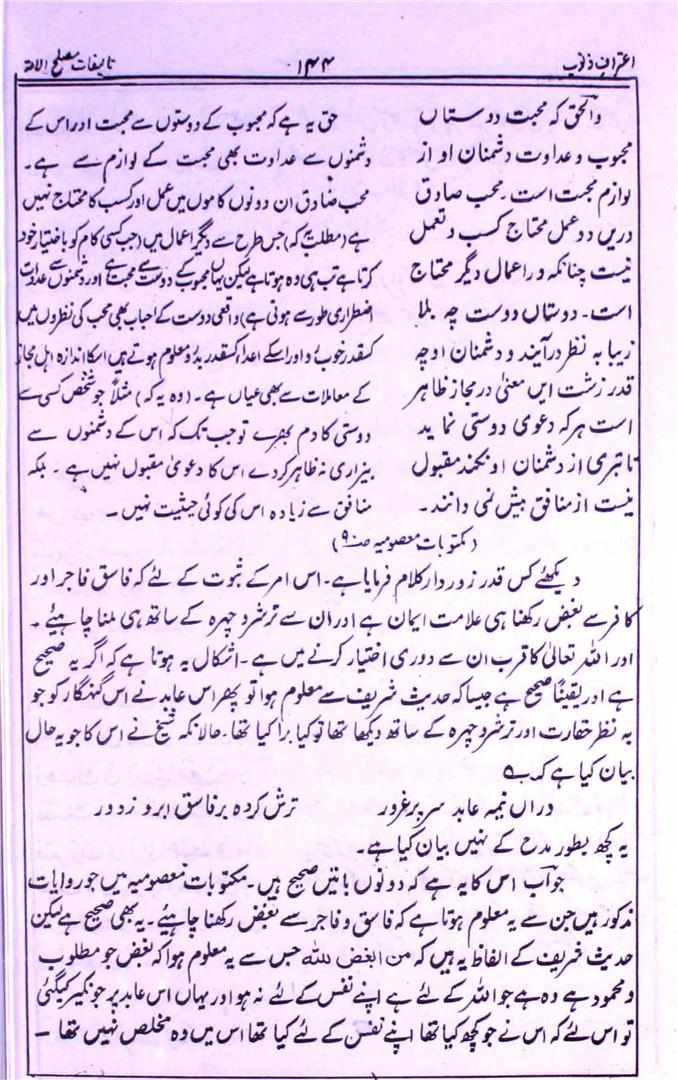 اعتراف ذنوب
۱۴۴
تالیفات مصلح الامۃ
والحق کہ محبت دوستاں
محبوب و عداوت دشمنان او از
لوازم محبت است۔ محب صادق
دریں دو عمل محتاج کسب و تعمل
نیست چنانکہ در اعمال دیگر محتاج
است۔ دوستاں دوست چہ بلا
زیبا بہ نظر در آیند و دشمنان او چہ
قدر زشت ایں معنی در مجاز ظاہر
است ہر کہ دعوی دوستی نماید
تا تبری از دشمنان او نکند مقبول
نیست از منافق بیش نمی دانند۔
حق یہ ہے کہ محبوب کے دوستوں سے محبت اور اس کے
دشمنوں سے عداوت بھی محبت کے لوازم سے ہے۔
محب صادق ان دونوں کاموں میں عمل اور کسب کا محتاج نہیں
ہے (مطلب کہ) جس طرح سے دیگر اعمال میں (جب کسی کام کو باختیار خود
کرتا ہے تب ہی وہ ہوتا ہے لیکن یہاں محبوب کے دوست سے محبت اور دشمنوں سے عداوت
اضطراری طور سے ہوتی ہے) واقعی دوست کے احباب بھی محب کی نظروں میں
کسقدر خوب رو اور اسکے اعداء کسقدر بدرو معلوم ہوتے ہیں اسکا اندازہ اہل مجاز
کے معاملات سے بھی عیاں ہے۔ (وہ یہ کہ) مثلاً جو شخص کسی سے
دوستی کا دم بھرے تو جب تک کہ اس کے دشمنوں سے
بیزاری نہ ظاہر کردے اس کا دعویٰ مقبول نہیں ہے۔ بلکہ
منافق سے زیادہ اس کی کوئی حیثیت نہیں۔
(مکتوبات معصومیہ صـ۹۰)
دیکھئے کس قدر زور دار کلام فرمایا ہے۔ اس امر کے ثبوت کے لئے کہ فاسق فاجر اور
کافر سے بغض رکھنا ہی علامت ایمان ہے اور ان سے ترشرو چہرہ کے ساتھ ہی ملنا چاہیئے۔
اور اللہ تعالیٰ کا قرب ان سے دوری اختیار کرنے میں ہے۔ اشکال یہ ہوتا ہے کہ اگر یہ صحیح
ہے اور یقیناً صحیح ہے جیسا کہ حدیث شریف سے معلوم ہوا تو پھر اس عابد نے اس گنہگار کو جو
بہ نظر حقارت اور ترشرو چہرہ کے ساتھ دیکھا تھا تو کیا برا کیا تھا۔ حالانکہ شیخ نے اس کا جو یہ حال
بیان کیا ہے کہ ؎
دراں نیمہ عابد سر پر غرور   ترش کردہ بر فاسق ابرو ز دور
یہ کچھ بطور مدح کے نہیں بیان کیا ہے۔
جواب اس کا یہ ہے کہ دونوں باتیں صحیح ہیں۔ مکتوبات معصومیہ میں جو روایات
مذکور ہیں جن سے یہ معلوم ہوتا ہے کہ فاسق و فاجر سے بغض رکھنا چاہیئے۔ یہ بھی صحیح ہے لیکن
حدیث شریف کے الفاظ یہ ہیں کہ من ابغض للہ جس سے یہ معلوم ہوا کہ بغض جو مطلوب
و محمود ہے وہ ہے جو اللہ کے لئے ہے اپنے نفس کے لئے نہ ہو اور یہاں اس عابد پر جو نکیر کیگئی
تو اس لئے کہ اس نے جو کچھ کیا تھا اپنے نفس کے لئے کیا تھا اس میں وہ مخلص نہیں تھا۔